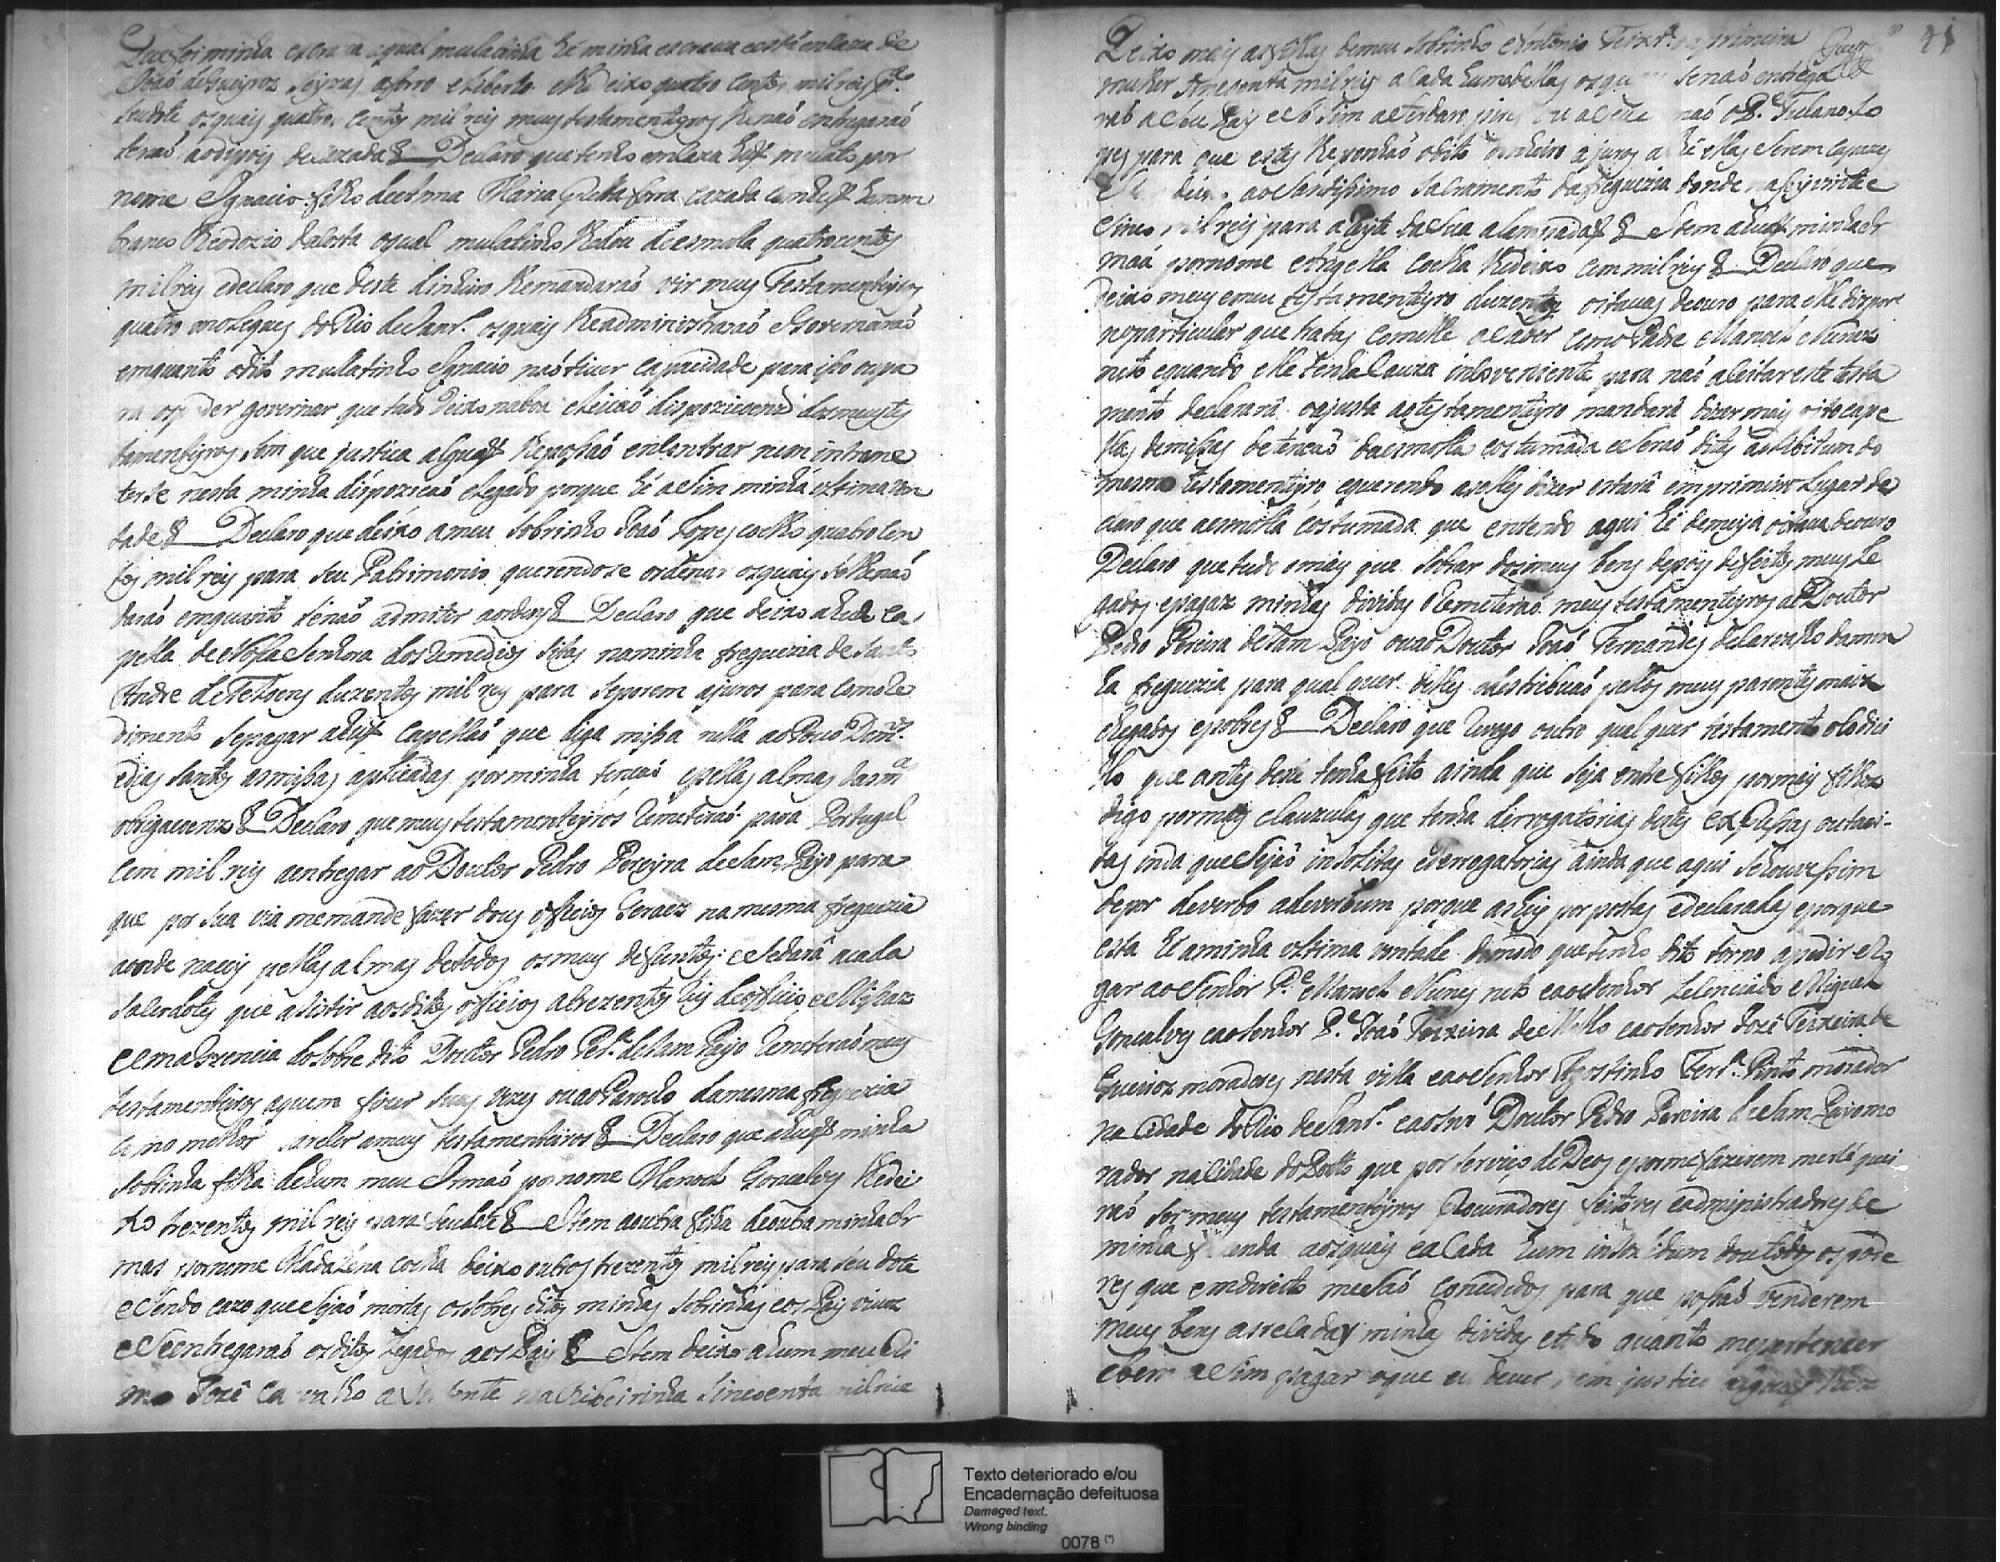 Que foi minha escrava a qual mulatinha hé minha escrava e está em caza de
João de Queyroz seja forro e liberto e lhe deixo quatro centos mil reis pª
seu dote os quais quatro centos mil reis meus testamenteyros lhe não entregarão
senão ao depois de cazada & Declaro que tenho em caza hũ mulato por
nome Ignacio filho de Anna Maria preta forra cazada com hũ homem
branco Theodozio da Costa o qual mulatinho lhe dou de esmola quatrocentos
mil reis e declaro que deste dinheiro lhe mandarão vir meus Testamenteyros
quatro moleques do Rio de Janrº os quais lhe administrarão e governarão
emquanto o dito mulatinho Ignacio não tiver capacidade para isso ou pa
ra os poder governar que tudo deixo na boa eleição disposiçoens dos meus tes
tamenteyros sem que justica algũa lhe possão encontrar nem introme
terse nesta minha dispozição e legado porque hé asim minha ultima von
tade & Declaro que deixo a meu sobrinho João Lopes Coelho quatro cen
tos mil reis para seu Patrimonio querendose ordenar os quais se lhe não
darão emquanto senão admitir a ordens & Declaro que deixo a hua ca
pella de Nossa Senhora dos Remedios sita na minha freguezia de Santo
Andre de Teloens duzentos mil reis para se porem a juros para com o re
dimento se pagar a hũ Capellão que diga missa nella ao Povo Domos
e dias santos as missas aplicadas por minha tenção e pellas almas da mª
obrigacoens & Declaro que meus testamenteyros remeterão para Portugal
cem mil reis a entregar ao Doutor Pedro Pereyra de Sam Payo para
que por sua via me mande fazer dous officios geraes na mesma freguezia
aonde naci pellas almas de todos os meus defuntos e se dará a cada
sacerdote que asistir aos ditos officios a trezentos reis de officio e Missa
e em auzencia do sobre dito Doutor Pedro Perª de Sam Payo remeterão meus
testamenteiros a quem fizer suas vezes ou ao Parocho da mesma freguezia
como melhor parecer a meus testamenteiros & Declaro que a hũa minha
sobrinha filha de hum meu Irmão por nome Manoel Gonçalves lhe dei
xo trezentos mil reis para seu dote & Item a outra filha de outra minha Ir
mas por nome Madalena Coelha deixo outros trezentos mil reis para seu dote
e sendo cazo que sejão mortas os sobre ditos minhas sobrinhas e os Pays vivos
e se entregarão os ditos legados aos Pays & Item deixo a hum meu Pri
mo José Carvalho na Ribeirinha sincoenta mil reis
Deixo mais as filhas de meu sobrinho Antonio Teixrª da primeira
mulher sincoenta mil reis a cada huma dellas os quais senão entrega
rão a seu Pay e sim não o Pe. Feliano Lo
pes para que estes lhe ponhão o dito dinheiro a juros a thé ellas serem capazes
deixo ao Santissimo Sacramento da freguezia donde nassy vinte e
sinco mil reis para a sua alampada & Item a hũa minha Ir
maã por nome Angella Coelha lhe deixo cem mil reis & Declaro que
deixo meu testamenteyro duzentos oitavas de ouro para elle dispor
no particular que tratey com elle a saber como Padre Manoel Nunes
neto e quando elle tenha cauza inconveniente para não aseitar este testa
mento declarará o ajusta ao testamenteyro mandará dizer mais oito cape
llas de missas de tenção da esmolla costumada e serão ditas ad libitum do
mesmo testamenteyro e querendo as elles dizer estará em primeiro lugar de
claro que a esmolla costumada que entendo aqui hé de meya oitava de ouro
Declaro que tudo o mais que sobrar dos meus bens depois de feitos meus le
gados e pagas minhas dividas remeterão meus testamenteyros ao Doutor
Pedro Pereira de Sam Payo ou ao Doutor João Fernandes de Carvalho da min
ha freguezia para qual quer delles os destribuão pellos meus parentes mais
chegados e pobres & Declaro que revogo outro qual quer testamento o codici
lho que antes deste tenha feito ainda que seja entre filhos por mais filhos
digo por mais clauzulas que tenha derrogatorias destas expressas ou taci-
tas inda que sejão insolitas e derrogatorias ainda que aqui se houvessem
de por de verbo adeverbum porque as hey por postas e declaradas e porque
esta hé a minha ultima vontade do modo que tenho dito torno a pedir e Ro
gar ao Senhor Pe Manoel Nunes neto e ao Senhor Lecenciado Miguel
Gonçalves e ao Senhor Pe João Teixeira de Mello e ao Senhor Jozé Teixeira de
Queiroz moradores nesta villa e ao Senhor Agostinho Ferrª Pinto morador
na Cidade do Rio de Janrº e ao Snr Doutor Pedro Pereira de Sam Payo mo
rador na Cidade do Porto que por serviço de Deos e por me fazerem mercê quei
rão ser meus testamenteyros Procuradores feitores e administradores de
minha fazenda aos quais e a cada hum insolidum dou todos os pode
res que em direito me são concedidos para que possão venderem
meus bens arecadar minhas dividas e tudo quanto me pertencer
e bem asim pagar o que eu dever sem justica algũa
41
Texto deteriorado e/ou
Encadernação defeituosa
Damaged text.
Wrong binding
0078 (*)